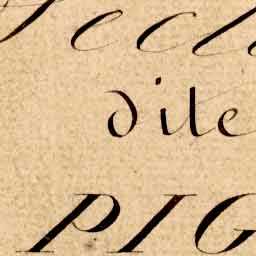 ecl
d'ile
PIG